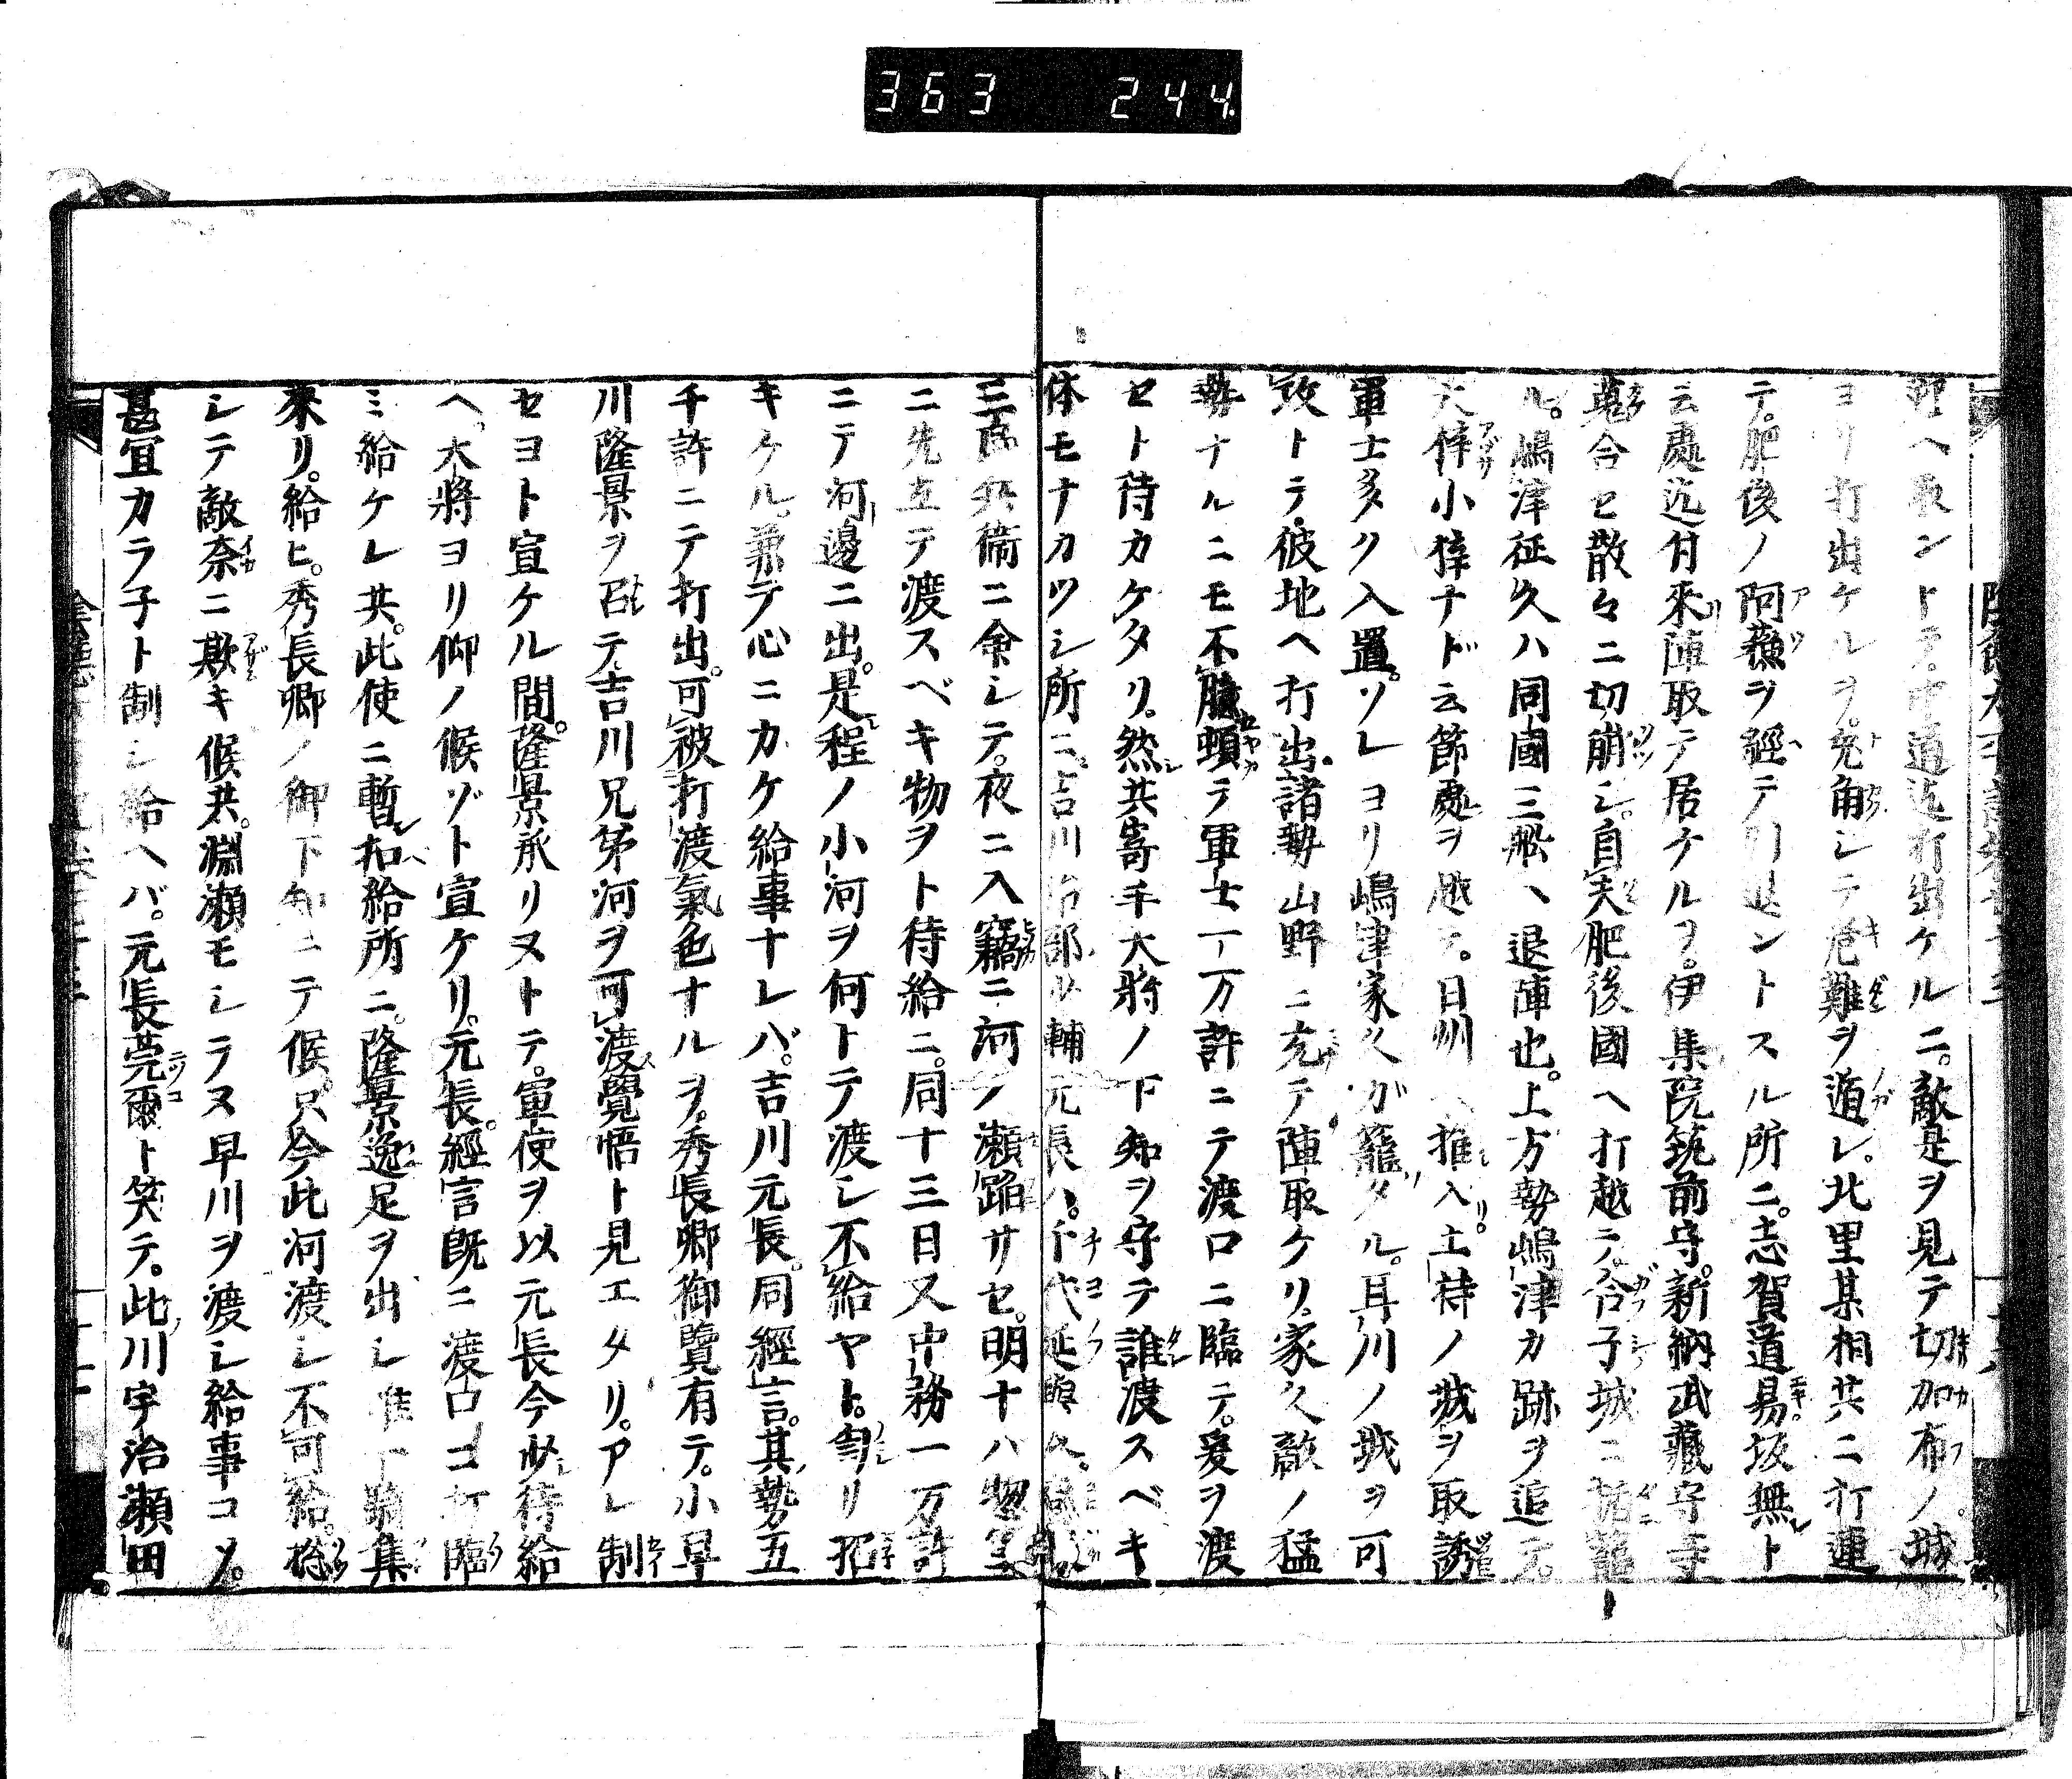 363 244
ヘ取ントテ、中道迄打出ケルニ。敵是ヲ見テ切加布ノ城
ヨリ打出ケルヲ。兎角シテ危難ヲ遁レ。北里某相共ニ打連
テ。肥後ノ阿蘓ヲ經テ引退ントスル所ニ。志賀道易坂無ト
云處迄付來陣取テ居ケルヲ。伊集院筑前守。新納武藏守寺
合セ散々ニ切崩シ。自夫肥後國ヘ打越テ。合子城ニ楯籠
ル。嶋津征久ハ同國三舩ヘ退陣也。上方勢嶋津カ跡ヲ追テ。
大梓小梓ナド云節處ヲ越テ。日州ヘ推入。土持ノ城ヲ取誘
軍士多ク入置。ソレヨリ嶋津家久ガ籠タル。耳川ノ城ヲ可
攻トテ。彼地ヘ打出。諸勢山野ニ充テ陣取ケリ。家久敵ノ猛
勢ナルニモ不臆頓テ軍士一万許ニテ渡口ニ臨テ。爰ヲ渡
セト待カケタリ。然共寄手大將ノ下知ヲ守テ誰渡スベキ
体モナカツシ所ニ。吉川治部少輔元長ハ。千代延與
兵衞ニ命シテ。夜ニ入竊ニ河ノ瀬蹈サセ。明十八惣軍
ニ先立テ渡スベキ物ヲト待給ニ。同十三日又中務一万許
ニテ河邊ニ出。是程ノ小河ヲ何トテ渡シ不給ヤト。匀リ招
キケル。兼テ心ニカケ給事ナレバ。吉川元長。同經言。其勢五
千許ニテ打出。可被打渡氣色ナルヲ。秀長卿御覽有テ。小早
川隆景ヲ召テ。吉川兄弟河ヲ可渡覺悟ト見エタリ。アレ制
セヨト宣ケル間。隆景承リヌトテ。軍使ヲ以元長今少待給
ヘ。大將ヨリ仰ノ候ゾト宣ケリ。元長。經言既ニ渡口コ打臨
ミ給ケレ共。此使ニ暫扣給所ニ。隆景逸足ヲ出シ唯一騎集
來リ。給ヒ。秀長卿ノ御下知ニテ候。只今此河渡シ不可給。捴
シテ敵奈ニ欺キ候共。淵瀬モシラヌ早川ヲ渡シ給事コソ。
甚宜カラ子ト制シ給ヘバ。元長莞爾ト笑テ。此川宇治瀬田